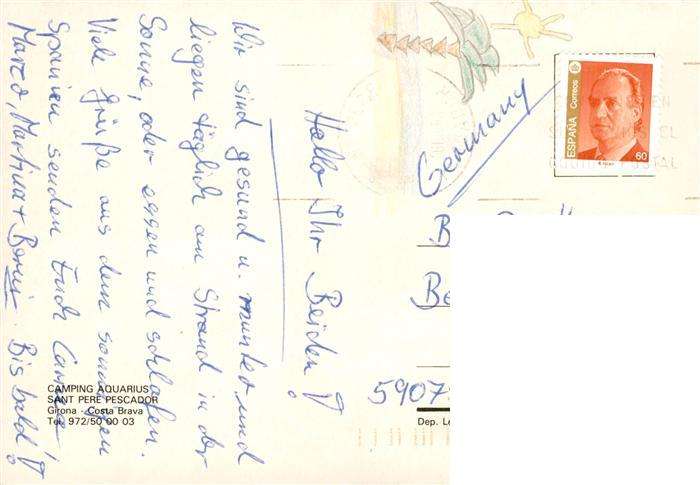 Hallo Ihr Beiden!
Wir sind gesund u. munter und
liegen täglich am Strand in der
Sonne, oder essen und schlafen.
Viele Grüße aus dem sonnigen
Spanien senden Euch
Marco, Martina + . Bis bald!
CAMPING AQUARIUS
SANT PERE PESCADOR
Girona - Costa Brava
Tel. 972/50 00 03
Germany
ESPAÑA
Correos
60
B
Be
5907
Dep. Le